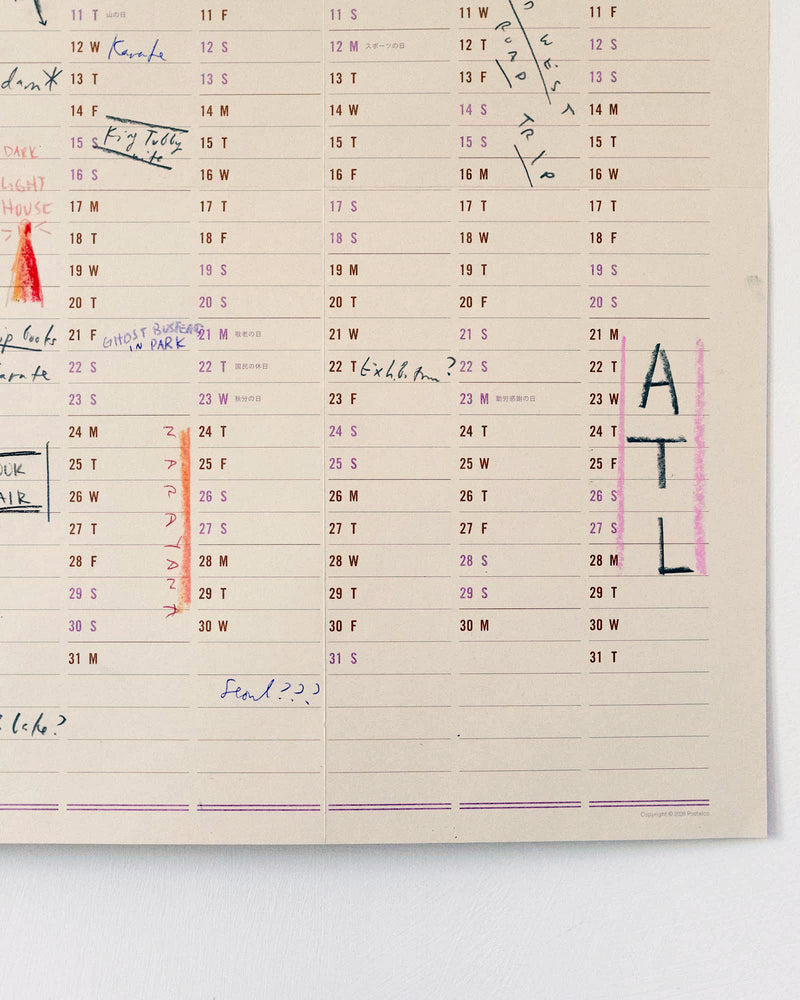 DARK
LIGHT
HOUSE
lake?
11 T 山の日
12 W Karate
13 T
14 F
15 S King Tubby
nite
16 S
17 M
18 T
19 W
20 T
21 F GHOST BUSTERS
IN PARK
22 S
23 S
24 M
25 T
26 W
27 T
28 F
29 S
30 S
31 M
11 F
12 S
13 S
14 M
15 T
16 W
17 T
18 F
19 S
20 S
21 M 敬老の日
22 T 国民の休日
23 W 秋分の日
24 T
25 F
26 S
27 S
28 M
29 T
30 W
Seoul???
11 S
12 M スポーツの日
13 T
14 W
15 T
16 F
17 S
18 S
19 M
20 T
21 W
22 T Exhibition?
23 F
24 S
25 S
26 M
27 T
28 W
29 T
30 F
31 S
11 W
12 T
13 F
14 S
15 S
16 M
17 T
18 W
19 T
20 F
21 S
22 S
23 M 勤労感謝の日
24 T
25 W
26 T
27 F
28 S
29 S
30 M
WEST
ROAD
TRIP
11 F
12 S
13 S
14 M
15 T
16 W
17 T
18 F
19 S
20 S
21 M
22 T
23 W
24 T
25 F
26 S
27 S
28 M
29 T
30 W
31 T
ATL
Copyright © 2026 Postalco